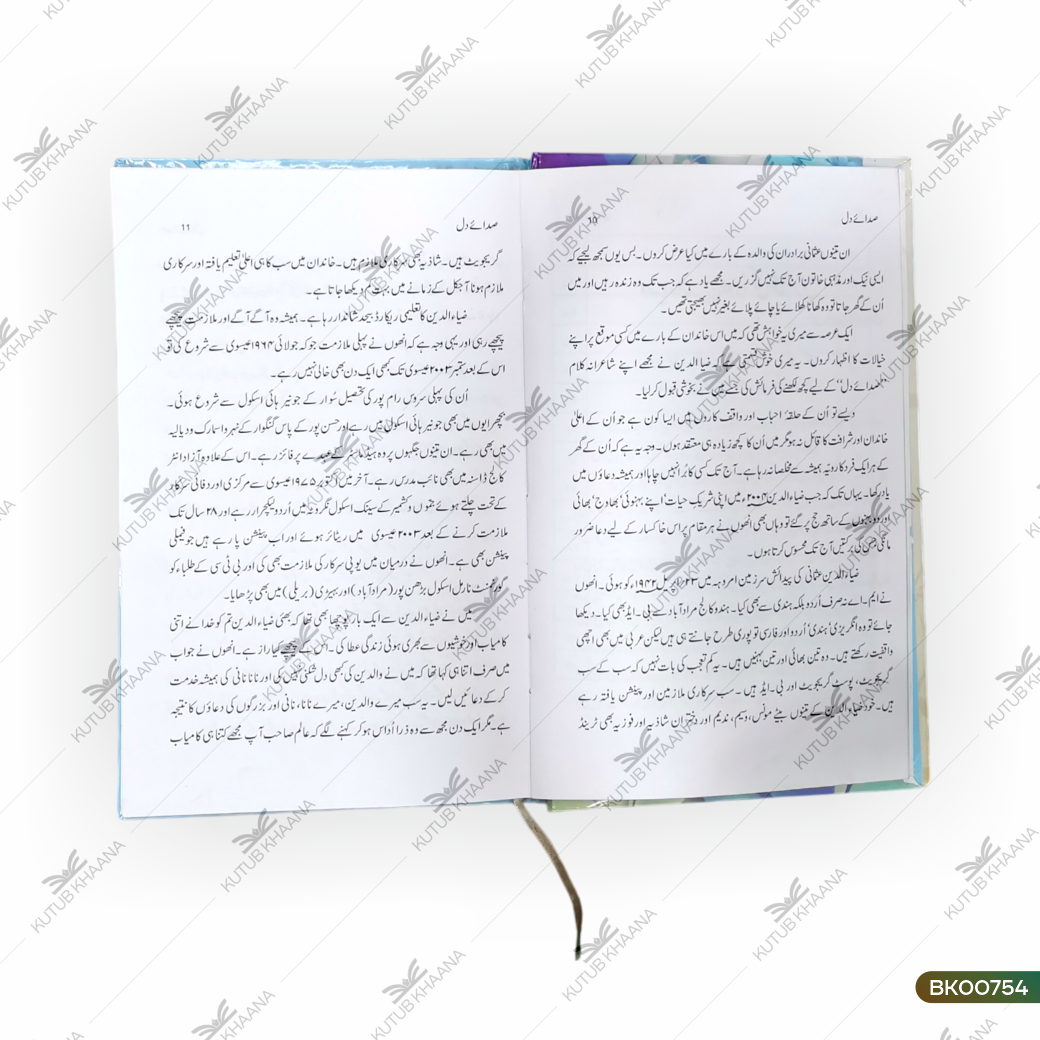 صدائے دل
10
ان تینوں عثمانی برادران کی والدہ کے بارے میں کیا عرض کروں۔ بس یوں سمجھ لیجیے کہ
ایسی نیک اور مذہبی خاتون آج تک نہیں گزریں۔ مجھے یاد ہے کہ جب تک وہ زندہ رہیں اور میں
اُن کے گھر جاتا تو وہ کھانا کھلائے یا چائے پلائے بغیر نہیں بھیجتی تھیں۔
ایک عرصہ سے میری یہ خواہش تھی کہ میں اس خاندان کے بارے میں کسی موقع پر اپنے
خیالات کا اظہار کروں۔ یہ میری خوش قسمتی ہے کہ ضیا الدین نے مجھے اپنے شاعرانہ کلام
"صدائے دل" کے لیے کچھ لکھنے کی فرمائش کی جسے میں نے بخوشی قبول کر لیا۔
ویسے تو اُن کے حلقۂ احباب اور واقف کاروں میں ایسا کون ہے جو اُن کے اعلیٰ
خاندان اور شرافت کا قائل نہ ہو مگر میں اُن کا کچھ زیادہ ہی معتقد ہوں۔ وجہ یہ ہے کہ اُن کے گھر
کے ہر ایک فرد کا رویّہ ہمیشہ سے مخلصانہ رہا ہے۔ آج تک کسی کا بُرا نہیں چاہا اور ہمیشہ دعاؤں میں
یاد رکھا۔ یہاں تک کہ جب ضیاء الدین ۲۰۰۴ء میں اپنی شریک حیات' اپنے بہنوئی' بھاوج' بھائی
اور دو بہنوں کے ساتھ حج پر گئے تو وہاں بھی انھوں نے ہر مقام پر اس خاکسار کے لیے دعا ضرور
مانگی جس کی برکتیں آج تک محسوس کرتا ہوں۔
ضیاء الدین عثمانی کی پیدائش سرزمین امروہہ میں ۲۳ اپریل ۱۹۴۲ء کو ہوئی۔ انھوں
نے ایم۔ اے نہ صرف اُردو بلکہ ہندی سے بھی کیا۔ ہندو کالج مراد آباد سے بی۔ ایڈ بھی کیا۔ دیکھا
جائے تو وہ انگریزی' ہندی' اُردو اور فارسی تو پوری طرح جانتے ہی ہیں لیکن عربی میں بھی اچھی
واقفیت رکھتے ہیں۔ وہ تین بھائی اور تین بہنیں ہیں۔ یہ کم تعجب کی بات نہیں کہ سب کے سب
گریجویٹ، پوسٹ گریجویٹ اور بی۔ ایڈ ہیں۔ سب سرکاری ملازمین اور پینشن یافتہ رہے
ہیں۔ خود ضیاء الدین کے تینوں بیٹے مونس، وسیم، ندیم اور دختران شاذیہ اور فوزیہ بھی ٹرینڈ
صدائے دل
۱۱
گریجویٹ ہیں۔ شاذیہ بھی سرکاری ملازم ہیں۔ خاندان میں سب کا ہی اعلیٰ تعلیم یافتہ اور سرکاری
ملازم ہونا آجکل کے زمانے میں بہت کم دیکھا جاتا ہے۔
ضیاء الدین کا تعلیمی ریکارڈ بیحد شاندار رہا ہے۔ ہمیشہ وہ آگے آگے اور ملازمت پیچھے
پیچھے رہی اور یہی وجہ ہے کہ انھوں نے پہلی ملازمت جو کہ جولائی ۱۹۶۴ عیسوی سے شروع کی تو
اس کے بعد ستمبر ۲۰۰۳ عیسوی تک کبھی ایک دن بھی خالی نہیں رہے۔
اُن کی پہلی سروس رام پور کی تحصیل سُوار کے جونیر ہائی اسکول سے شروع ہوئی۔
بچھرایوں میں بھی جونیر ہائی اسکول میں رہے اور حسن پور کے پاس گنگوار کے نہرو اسمارک ودیالیہ
میں بھی رہے۔ ان تینوں جگہوں پر وہ ہیڈ ماسٹر کے عہدے پر فائز رہے۔ اس کے علاوہ آزاد انٹر
کالج ڈاسنہ میں بھی نائب مدرس رہے۔ آخر میں اکتوبر ۱۹۷۵ عیسوی سے مرکزی اور دفاعی سرکار
کے تحت چلتے ہوئے جموں و کشمیر کے سینک اسکول نگروٹہ میں اُردو لیکچرار رہے اور ۲۸ سال تک
ملازمت کرنے کے بعد ۲۰۰۳ عیسوی میں ریٹائر ہوئے اور اب پینشن پا رہے ہیں جو فیملی
پینشن بھی ہے۔ انھوں نے درمیان میں یو پی سرکار کی ملازمت بھی کی اور بی ٹی سی کے طلباء کو
گورنمنٹ نارمل اسکول بڑھن پور (مراد آباد) اور بہیڑی (بریلی) میں بھی پڑھایا۔
میں نے ضیاء الدین سے ایک بار پوچھا بھی تھا کہ بھئی ضیاء الدین تم کو خدا نے اتنی
کامیاب اور خوشیوں سے بھری ہوئی زندگی عطا کی۔ اس کے پیچھے کیا راز ہے۔ انھوں نے جواب
میں صرف اتنا ہی کہا تھا کہ میں نے والدین کی کبھی دل شکنی نہیں کی اور نانا نانی کی ہمیشہ خدمت
کر کے دعائیں لیں۔ یہ سب میرے والدین، میرے نانا، نانی اور بزرگوں کی دعاؤں کا نتیجہ
ہے۔ مگر ایک دن مجھ سے وہ ذرا اُداس ہو کر کہنے لگے کہ عالم صاحب آپ مجھے کتنا ہی کامیاب
KUTUB KHAANA
BK00754